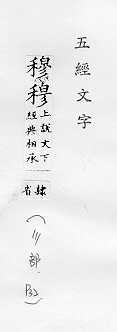 五經文字
穆穆
上說文下
經典相承
隸省
部